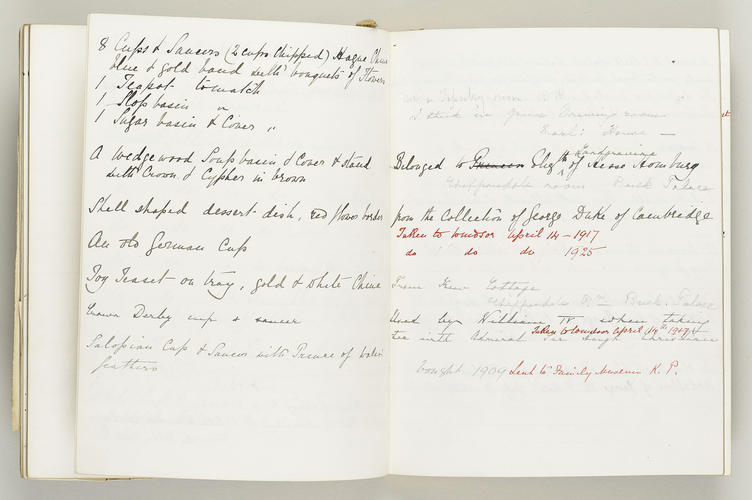 8 Cups & Saucers (2 cups chipped) Hague China
blue & gold band with bouquets of Flowers
1 Teapot to match
1 Slop basin "
1 Sugar basin & Cover "
A Wedgewood Soup basin & Cover & stand
with Crown & Cypher in brown
Shell shaped dessert dish, red flower border
An old German Cup
Toy Teaset on tray, gold & white China
Crown Derby cup & saucer
Salopian Cup & Saucer with Prince of Wales
feathers
room
& stand in Drawing room
House —
Belonged to Elizth Landgravine of Hesse Homburg
Chippendale room Buck. Palace
from the Collection of George Duke of Cambridge
Taken to Windsor April 14 - 1917
do do do 1925
From Kew Cottage
Chippendale Rm Buck. Palace
Used by William IV when taking
Taken to Windsor April 14th 1917
tea with Admiral Sir Hugh Christian
bought 1909 Lent to Family Museum K. P.